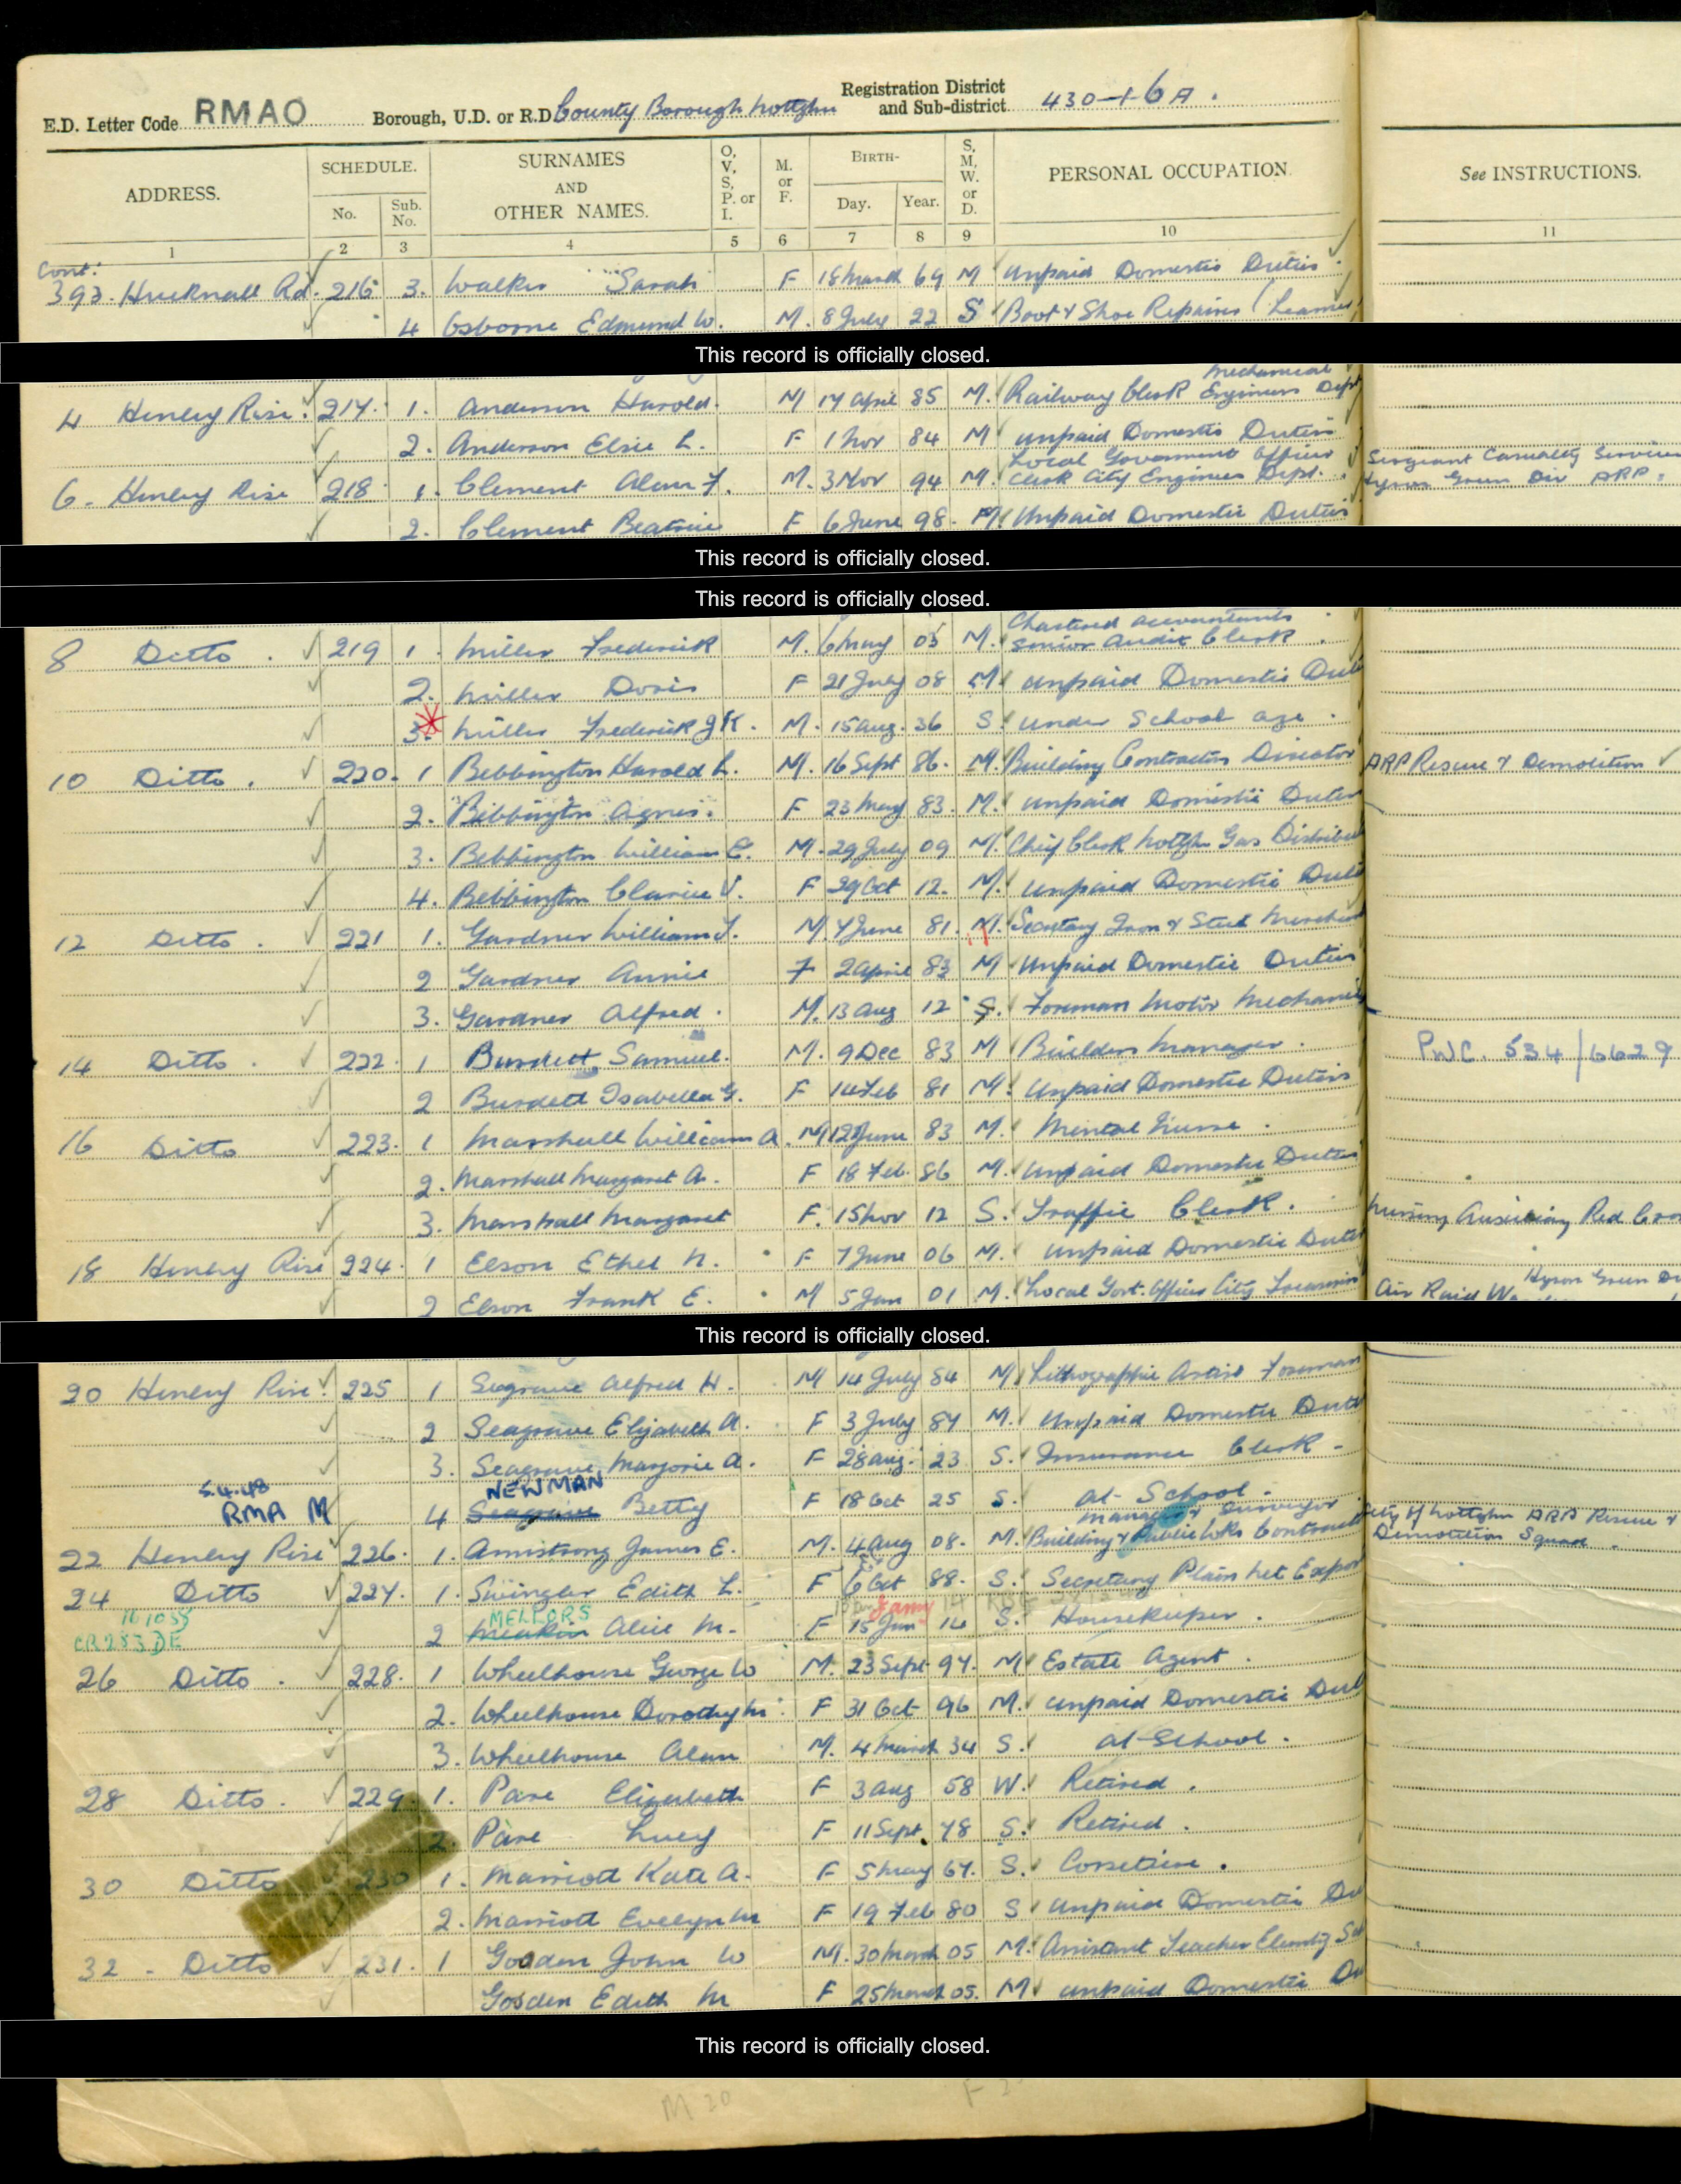 E.D. Letter Code RMAO Borough, U.D. or R.D. County Borough Nottghm Registration District and Sub-district 430-1-6A.
ADDRESS. SCHEDULE. No. Sub. No. SURNAMES AND OTHER NAMES. O, V, S, P. or I. M. or F. BIRTH- Day. Year. S, M, W. or D. PERSONAL OCCUPATION. See INSTRUCTIONS.
1 2 3 4 5 6 7 8 9 10 11
Cont:
393. Hucknall Rd. 216 3. Walker Sarah F 18 March 69 M Unpaid Domestic Duties
4 Osborne Edmund W. M. 8 July 22 S Boot & Shoe Repairer (Learner
This record is officially closed.
4 Henley Rise. 217. 1. Anderson Harold. M 17 April 85 M. Railway Clerk Mechanical Engineers Dept
2. Anderson Elsie L. F 1 Nov 84 M unpaid Domestic Duties
6. Henley Rise 218 1. Clement Alan F. M. 3 Nov 94 M. Local Government Officer Clerk City Engineers Dept. Sergeant Casualty Service Hyson Green Div ARP.
2. Clement Beatrice F 6 June 98. M. Unpaid Domestic Duties
This record is officially closed.
This record is officially closed.
8 Ditto. 219 1. Miller Frederick M. 6 May 05 M. Chartered Accountants Senior Audit Clerk.
2. Miller Doris F 21 July 08 M unpaid Domestic Duti
3. Miller Frederick J K. M. 15 Aug. 36 S under School age.
10 Ditto. 220. 1 Bebbington Harold L. M. 16 Sept 86. M. Building Contractors Director ARP Rescue & Demolition
2. Bebbington Agnes. F 23 May 83. M. unpaid Domestic Duties
3. Bebbington William E. M. 29 July 09 M. Chief Clerk Nottghm Gas Distribu
4. Bebbington Clarice V. F 29 Oct 12. M. unpaid Domestic Duti
12 Ditto. 221 1. Gardner William J. M. 7 June 81. M. Secretary Iron & Steel Merchan
2 Gardner Annie F 2 April 83 M Unpaid Domestic Duties
3. Gardner Alfred. M. 13 Aug 12 S. Foreman Motor Mechanic
14 Ditto. 222. 1 Burdett Samuel. M. 9 Dec 83 M Builders Manager. PWC. 534/6629
2 Burdett Isabella G. F 14 Feb 81 M. Unpaid Domestic Duties
16 Ditto 223. 1 Marshall William A. M 12 June 83 M. Mental Nurse.
2. Marshall Margaret A. F 18 Feb. 86 M. Unpaid Domestic Duties
3. Marshall Margaret F. 15 Nov 12 S. Traffic Clerk. Nursing Auxiliary Red Cros
18 Henley Rise 224. 1 Elson Ethel N. F 7 June 06 M. unpaid Domestic Duties
2 Elson Frank E. M 5 Jan 01 M. Local Govt. Officer City Air Raid Wa Hyson Green Di
This record is officially closed.
20 Henley Rise. 225 1 Seagrave Alfred H. M 14 July 84 M Lithographic Artist Foreman
2 Seagrave Elizabeth A. F 3 July 87 M. Unpaid Domestic Duti
3. Seagrave Marjorie A. F 28 Aug. 23 S. Insurance Clerk.
5.4.48 RMA M 4 NEWMAN Seagrave Betty F 18 Oct 25 S. at School.
22 Henley Rise 226. 1. Armstrong James E. M. 4 Aug 08. M. Manager & Surveyor Building & Public Wks Contract City of Nottghm ARP Rescue & Demolition Squad.
24 Ditto 227. 1. Swingler Edith L. F 6 Oct 88. S. Secretary Plain Net Expor
16 10 53 CR 283 DE 2 MELLORS Meakin Alice M. F 15 Jun Jany 14 S. Housekeeper.
26 Ditto. 228. 1 Wheelhouse George W M. 23 Sept 97. M Estate Agent.
2. Wheelhouse Dorothy M. F 31 Oct 96 M. unpaid Domestic Duti
3. Wheelhouse Alan M. 4 March 34 S. at School.
28 Ditto. 229. 1. Pare Elizabeth F 3 Aug 58 W. Retired.
2. Pare Lucy F 11 Sept. 78 S. Retired.
30 Ditto 230 1. Marriott Kate A. F 5 May 67. S. Corsetiere.
2. Marriott Evelyn M F 19 Feb 80 S unpaid Domestic Du
32 - Ditto 231. 1 Gosden John W M. 30 March 05 M. Assistant Teacher Elemtry Sch
Gosden Edith M F 25 March 05. M unpaid Domestic Du
This record is officially closed.
M 20 F 2